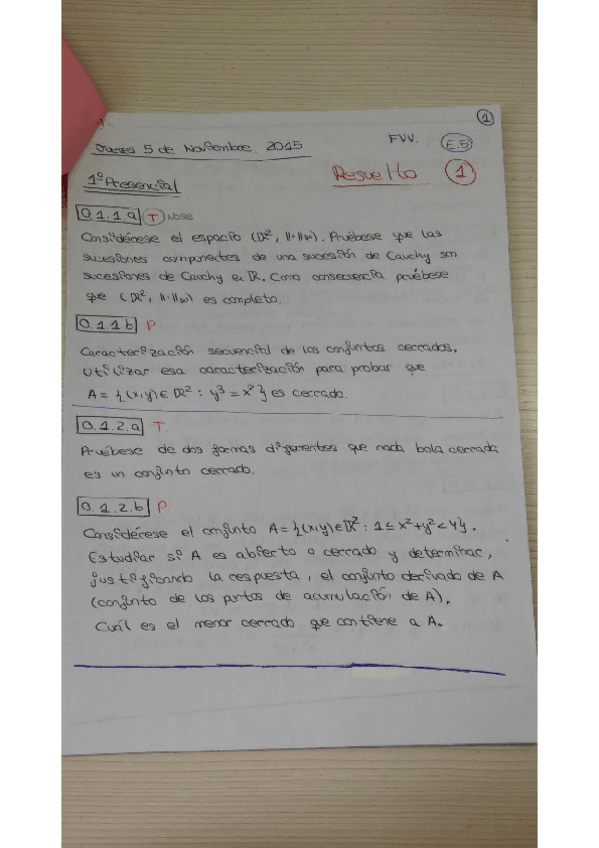 1
Jueves 5 de Noviembre. 2015 FVV. E.5
Resuelto 1
1º Presencial
0.1.1a T Nose
Considérese el espacio (ℝ², ||·||∞). Pruébese que las
sucesiones componentes de una sucesión de Cauchy son
sucesiones de Cauchy en ℝ. Como consecuencia pruébese
que (ℝ², ||·||∞) es completo.
0.1.1b P.
Caracterización secuencial de los conjuntos cerrados.
Utilizar esa caracterización para probar que
A = {(x,y) ∈ ℝ² : y³ = x²} es cerrado.
0.1.2.a T.
Pruébese de dos formas diferentes que cada bola cerrada
es un conjunto cerrado.
0.1.2.b P.
Considérese el conjunto A = {(x,y) ∈ ℝ² : 1 ≤ x² + y² < 4}.
Estudiar si A es abierto o cerrado y determinar,
justificando la respuesta, el conjunto derivado de A
(conjunto de los puntos de acumulación de A).
Cuál es el menor cerrado que contiene a A.